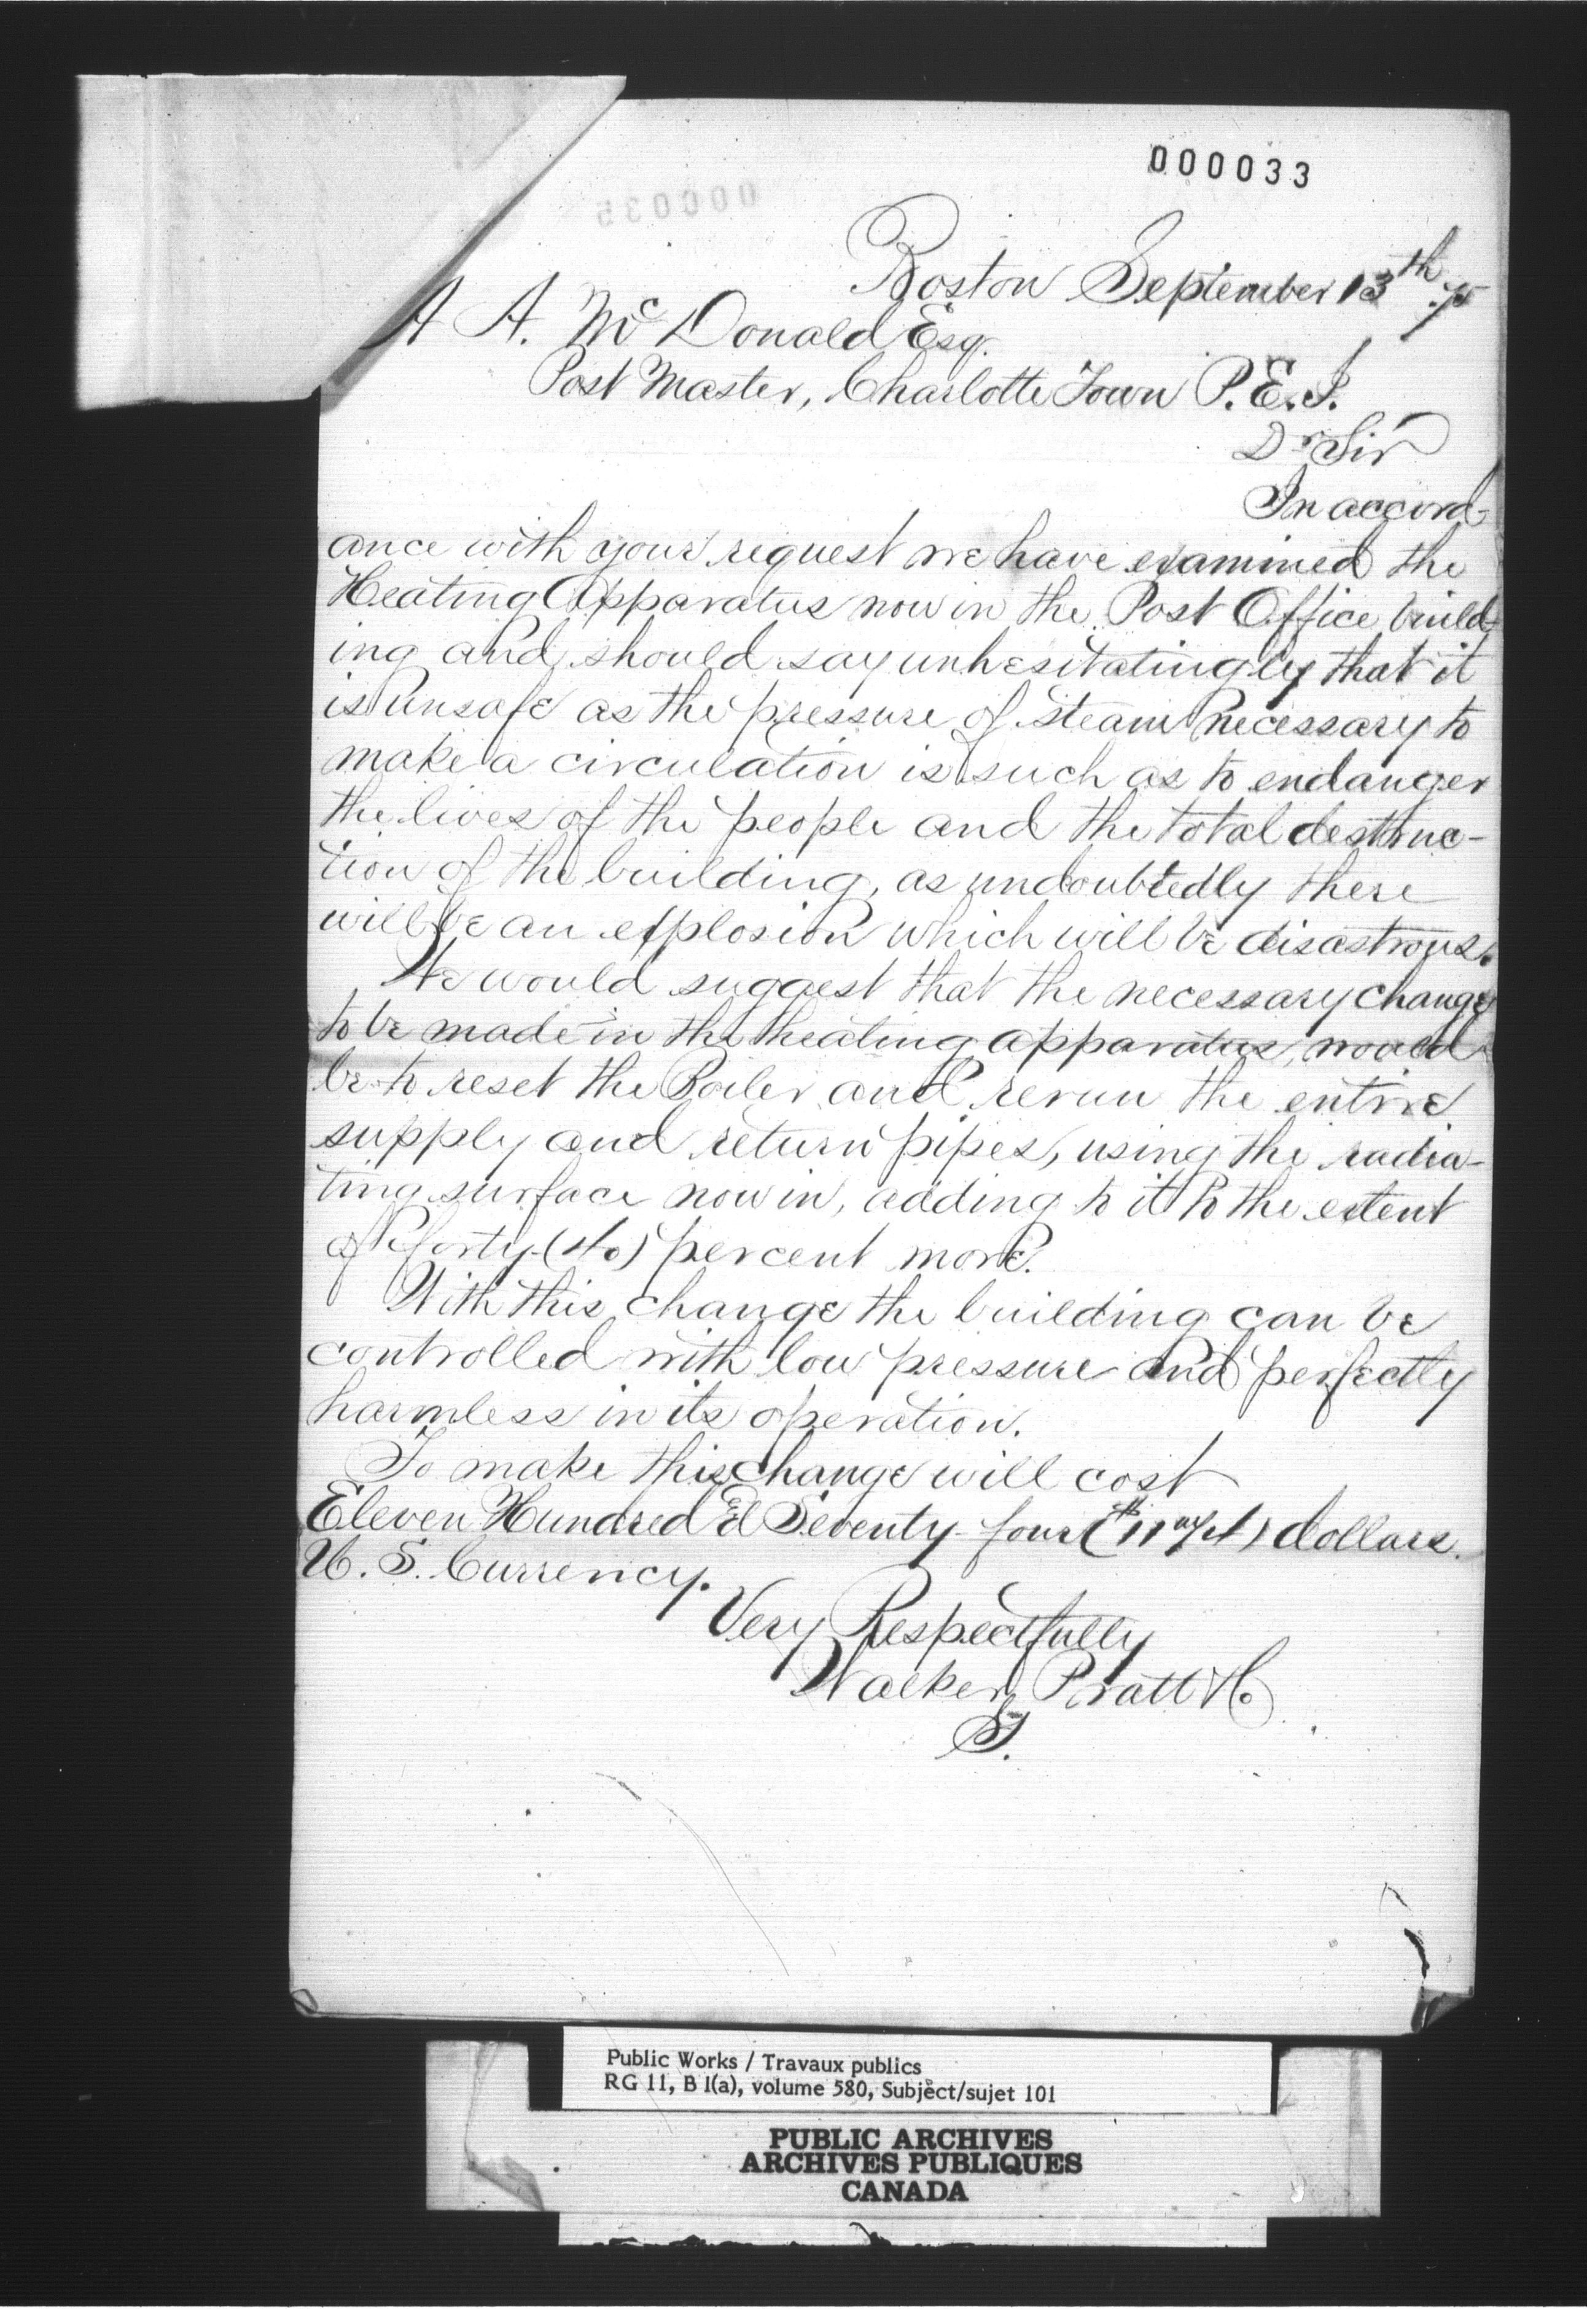 000033
000035
Boston September 13th 75
A A. McDonald Esq.
Post Master, Charlotte Town P. E. I.
Dr Sir
In accord-
ance with your request we have examined the
Heating Apparatus now in the Post Office build-
ing and should say unhesitatingly that it
is unsafe as the pressure of steam necessary to
make a circulation is such as to endanger
the lives of the people and the total destruc-
tion of the building, as undoubtedly there
will be an explosion which will be disastrous.
We would suggest that the necessary change
to be made in the heating apparatus, would
be to reset the Boiler and rerun the entire
supply and return pipes, using the radia-
ting surface now in, adding to it to the extent
of forty (40) percent more.
With this change the building can be
controlled with low pressure and perfectly
harmless in its operation.
To make this change will cost
Eleven Hundred & Seventy-four ($1174) dollars
U. S. Currency.
Very Respectfully
Walker Pratt & Co
Public Works / Travaux publics
RG 11, B 1(a), volume 580, Subject/sujet 101
PUBLIC ARCHIVES
ARCHIVES PUBLIQUES
CANADA